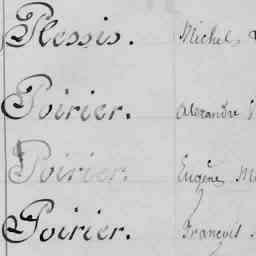 Plessis. Michel
Poirier. Alexandre
Poirier. Eugène
Poirier. François